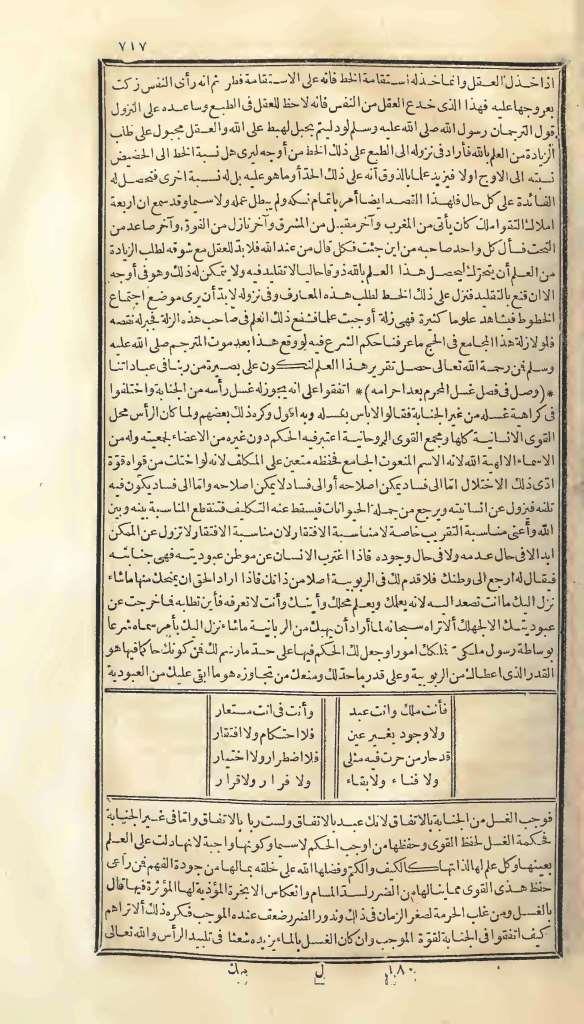 ٧١٧
اذا خذل العقل وانما خذله استقامة الخط فانه على الاستقامة فطر ثم انه رأى النفس زكت
بعروجها عليه فهذا الذى خدع العقل من النفس فانه لاحظ للعقل فى الطبع وساعده على النزول
قول الترجمان رسول الله صلى الله عليه وسلم لو دليتم بحبل لهبط على الله والعقل مجبول على طلب
الزيادة من العلم بالله فأراد فى نزوله الى الطبع على ذلك الخط من أوجه ليرى هل نسبة الخط الى الحضيض
نسبته الى الاوج اولا فيزيد علما بالذوق أنه على ذلك الحد أو ما هو عليه بل له نسبة اخرى فتحصل له
الفائدة على كل حال فلهذا القصد ايضا أهر باتمام نسكه ولم يبطل عمله ولاسيما وقد سمع ان اربعة
املاك التقوا ملك كان يأتى من المغرب وآخر مقبل من المشرق وآخر نازل من الفوق وآخر صاعد من
التحت فسأل كل واحد صاحبه من اين جئت فكل قال من عند الله فلابد للعقل مع شوقه لطلب الزيادة
من العلم أن يتحرك ليحصل هذا العلم بالله ذوقا حاليا لا تقليد فيه ولا يتمكن له ذلك وهو فى أوجه
الا ان قنع بالتقليد فنزل على ذلك الخط لطلب هذه المعارف وفى نزوله لابد أن يرى موضع اجتماع
الخطوط فيشاهد علوما كثيرة فهى زلة أوجبت علما فشفع ذلك العلم فى صاحب هذه الزلة فجبر له نقصه
فلولا زلة هذا المجامع فى الحج ما عرفنا حكم الشرع فيه لو وقع هذا بعد موت المترجم صلى الله عليه
وسلم فمن رحمة الله تعالى حصل تقرير هذا العلم لنكون على بصيرة من ربنا فى عباداتنا
*(وصل فى فصل غسل المحرم بعد احرامه)* اتفقوا على انه يجوز له غسل رأسه من الجنابة واختلفوا
فى كراهية غسله من غير الجنابة فقالوا لا بأس بغسله وبه اقول وكره ذلك بعضهم ولما كان الرأس محل
القوى الانسانية كلها ومجمع القوى الروحانية اعتبر فيه الحكم دون غيره من الاعضاء لجمعيته وله من
الاسماء الالهية الله لانه الاسم المنعوت الجامع فحفظه متعين على المكلف لانه لو اختلت من قواه قوة
ادى ذلك الاختلال امّا الى فساد يمكن اصلاحه أو الى فساد لا يمكن اصلاحه وامّا الى فساد يكون فيه
تلفه فيزول عن انسانيته ويرجع من جملة الحيوانات فيسقط عنه التكليف فتنقطع المناسبة بينه وبين
الله وأعنى مناسبة التقريب خاصة لا مناسبة الافتقار لان مناسبة الافتقار لا تزول عن الممكن
ابدا لا فى حال عدمه ولا فى حال وجوده فاذا اغترب الانسان عن موطن عبوديته فهى جنابته
فيقال له ارجع الى وطنك فلا قدم لك فى الربوبية اصلا من ذاتك فاذا اراد الحق ان يمنحك منها ماشاء
نزل اليك ما انت تصعد اليه لانه يعلمك ويعلم محلك وأينك وأنت لا تعرفه فأين تطلبه فما خرجت عن
عبوديتك الا لجهلك ألا تراه سبحانه لما أراد أن يهبك من الربانية ماشاء نزل اليك بأمر سماه شرعا
بوساطة رسول ملكى فملكك امورا وجعل لك الحكم فيها على حد ما رسم لك فمن كونك حاكما فيها هو
القدر الذى اعطاك من الربوبية وعلى قدر ما حدّ لك ومنعك من تجاوزه هو ما ابقى عليك من العبودية
فأنت ملك وانت عبد وأنت فى انت مستعار
ولا وجود بغير عين فلا احتكام ولا افتقار
قد حار من حرت فيه مثلى فلا اضطرار ولا اختيار
ولا فناء ولا بقاء ولا فرار ولا قرار
فوجب الغسل من الجنابة بالاتفاق لانك عبد بالاتفاق ولست ربا بالاتفاق وامّا فى غير الجنابة
فحكمة الغسل لحفظ القوى وحفظها من اوجب الحكم لاسيما وكونها واجبة لانها دلت على العلم
بعينها وكل علم لها لذاتها كالكيف والكم وفضلها الله على خلقه بمالها من جودة الفهم فمن راعى
حفظ هذى القوى مما ينالها من الضرر لسد المسام وانعكاس الابخرة المؤذية لها المؤثرة فيها قال
بالغسل ومن غلب الحرمة لصغر الزمان فى ذلك وندور الضرر ضعف عنده الموجب فكره ذلك ألا تراهم
كيف اتفقوا فى الجنابة لقوة الموجب وان كان الغسل بالماء يزيده شعثا فى تلبيد الرأس والله تعالى
١٨٠
ل